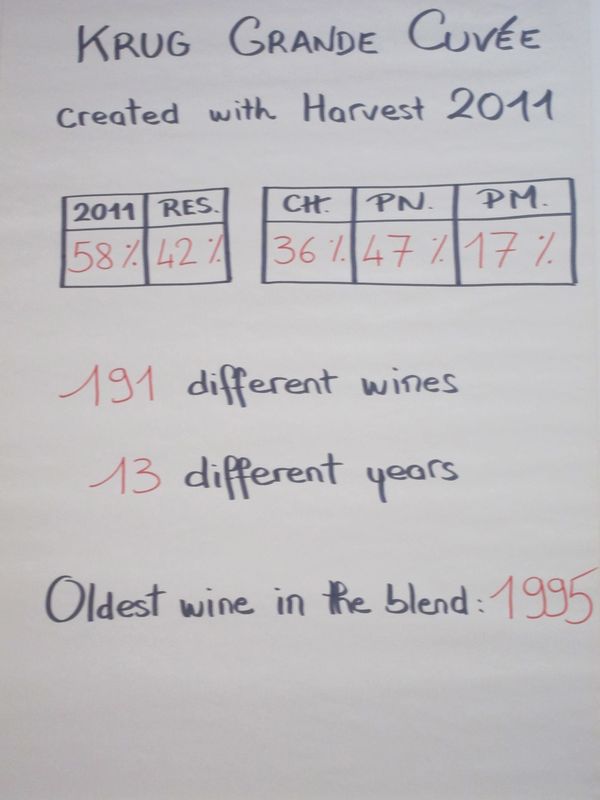 KRUG GRANDE CUVÉE
created with Harvest 2011
2011 RES. CH. PN. PM.
58% 42% 36% 47% 17%
191 different wines
13 different years
Oldest wine in the blend: 1995